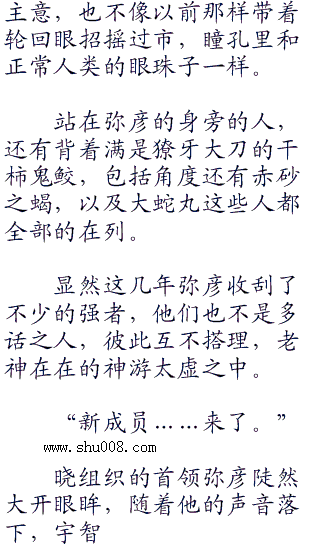 主意，也不像以前那样带着
轮回眼招摇过市，瞳孔里和
正常人类的眼珠子一样。
站在弥彦的身旁的人，
还有背着满是獠牙大刀的干
柿鬼鲛，包括角度还有赤砂
之蝎，以及大蛇丸这些人都
全部的在列。
显然这几年弥彦收刮了
不少的强者，他们也不是多
话之人，彼此互不搭理，老
神在在的神游太虚之中。
“新成员……来了。”
www.shu008.com
晓组织的首领弥彦陡然
大开眼眸，随着他的声音落
下，宇智